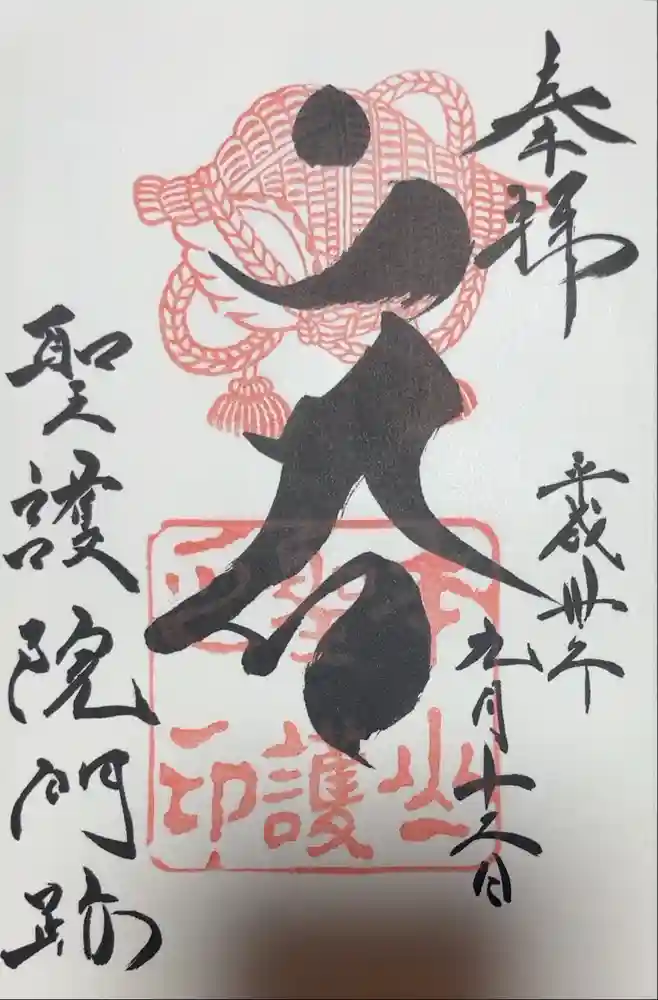 奉拝
平成卅年
九月十六日
聖護院門跡
山
護
印